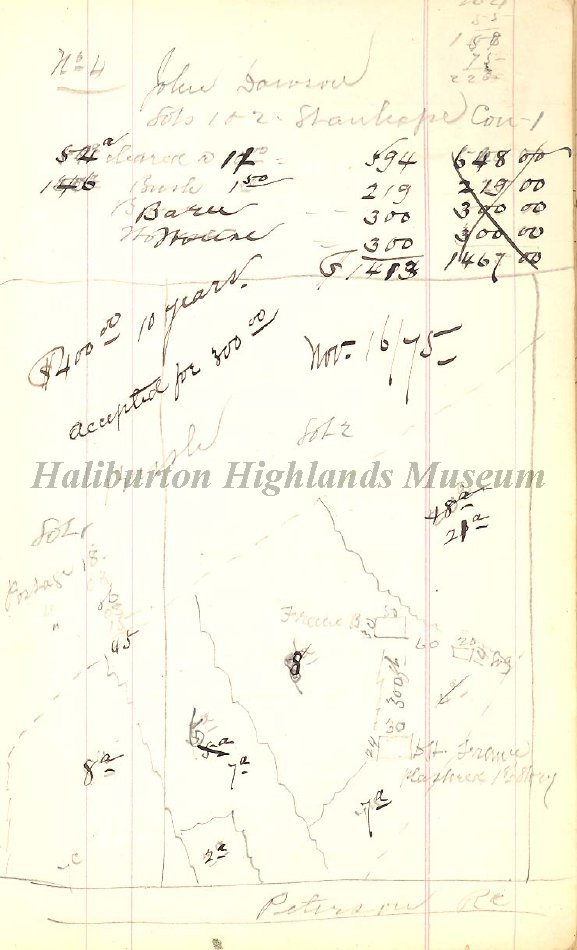 No 4
John Dawson
Lots 1 & 2 Stanhope Con-1
54a Cleared @ 11 594 648 00
146 Bush 1 50 219 219 00
Barn 300 300 00
House 300 300 00
$1413 1467 00
$400 00 10 years.
Nov. 16/75
accepted for 300 00
Lot 2
Haliburton Highlands Museum
48a
21a
Lot 1
Postage 18
"
"
45
Frame B
60
20
8
300 ft
30
24
Frame
Plastered
5a
7a
8a
7a
2a
Peterson Rd